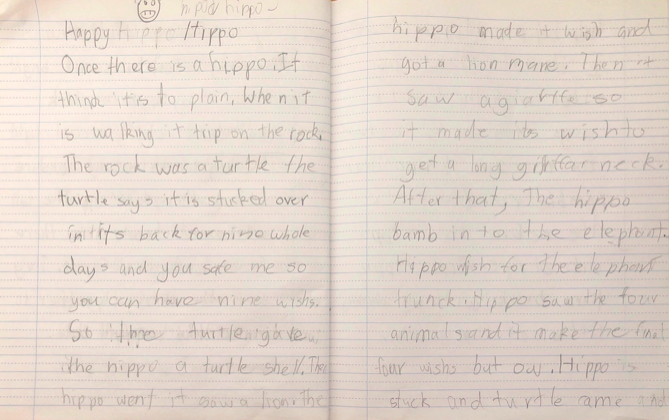 hippo
Happy Hippo
Once there is a hippo. It
think it is to plain, When it
is walking it trip on the rock.
The rock was a turtle the
turtle says it is stucked over
in its back for nino whole
days and you safe me so
you can have nine wishs.
So the turtle gave
the hippo a turtle shell. The
hippo went it saw a lion. the
hippo made a wish and
got a lion mane. Then it
saw a giraffe so
it made its wish to
get a long neck.
After that, The hippo
bamb in to the elephant.
Hippo wish for the elephant
trunck. Hippo saw the four
animals and it make the final
four wishs but ow. Hippo is
stuck and turtle came and